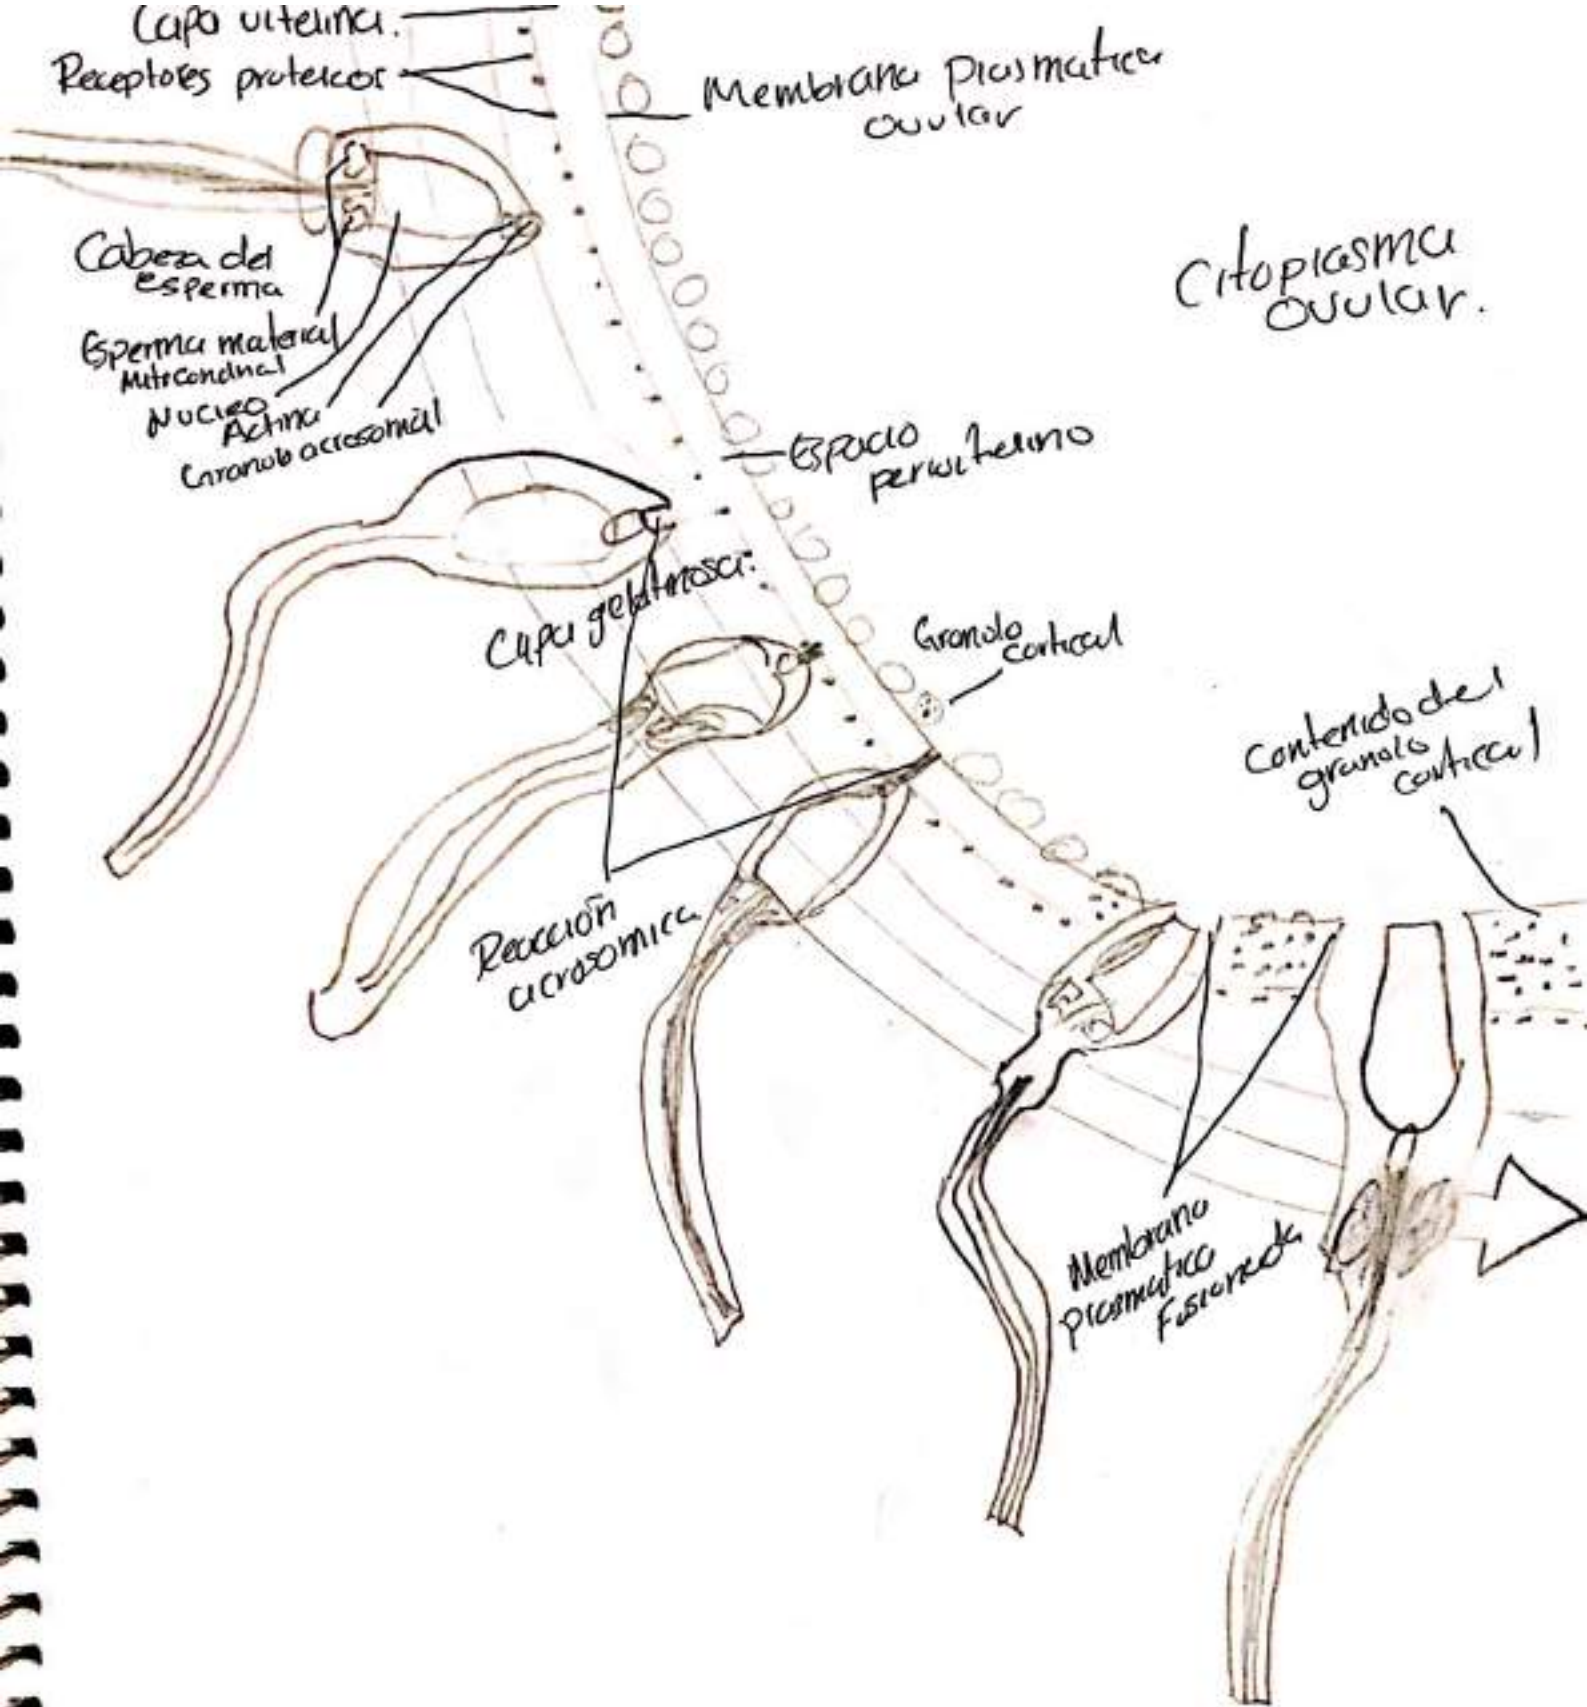 Capa vitelina.
Receptores proteicos
Membrana plasmatica
ovular
Cabeza del
esperma
Citoplasma
ovular.
Esperma material
Mitocondrial
Nucleo
Actina
Granulo acrosomal
Espacio
perivitelino
Capa gelatinosa:
Granulo
cortical
Contenido del
granulo
cortical
Reacción
acrosomica
Membrana
plasmatica
Fusionada